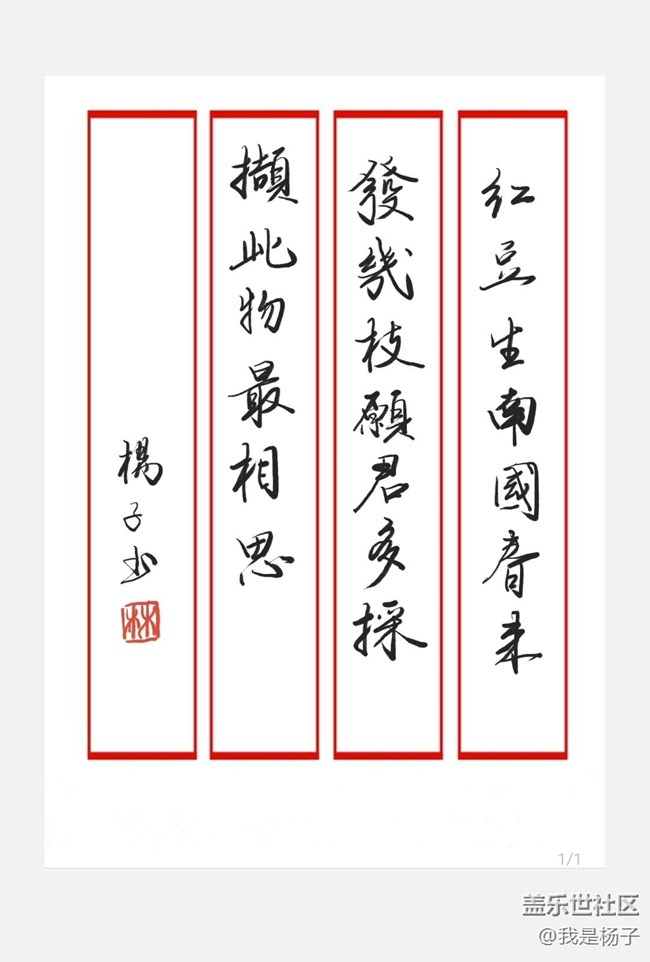 红豆生南國春来
發幾枝願君多採
擷此物最相思
楊子书
林
1/1
盖乐世社区
@我是杨子